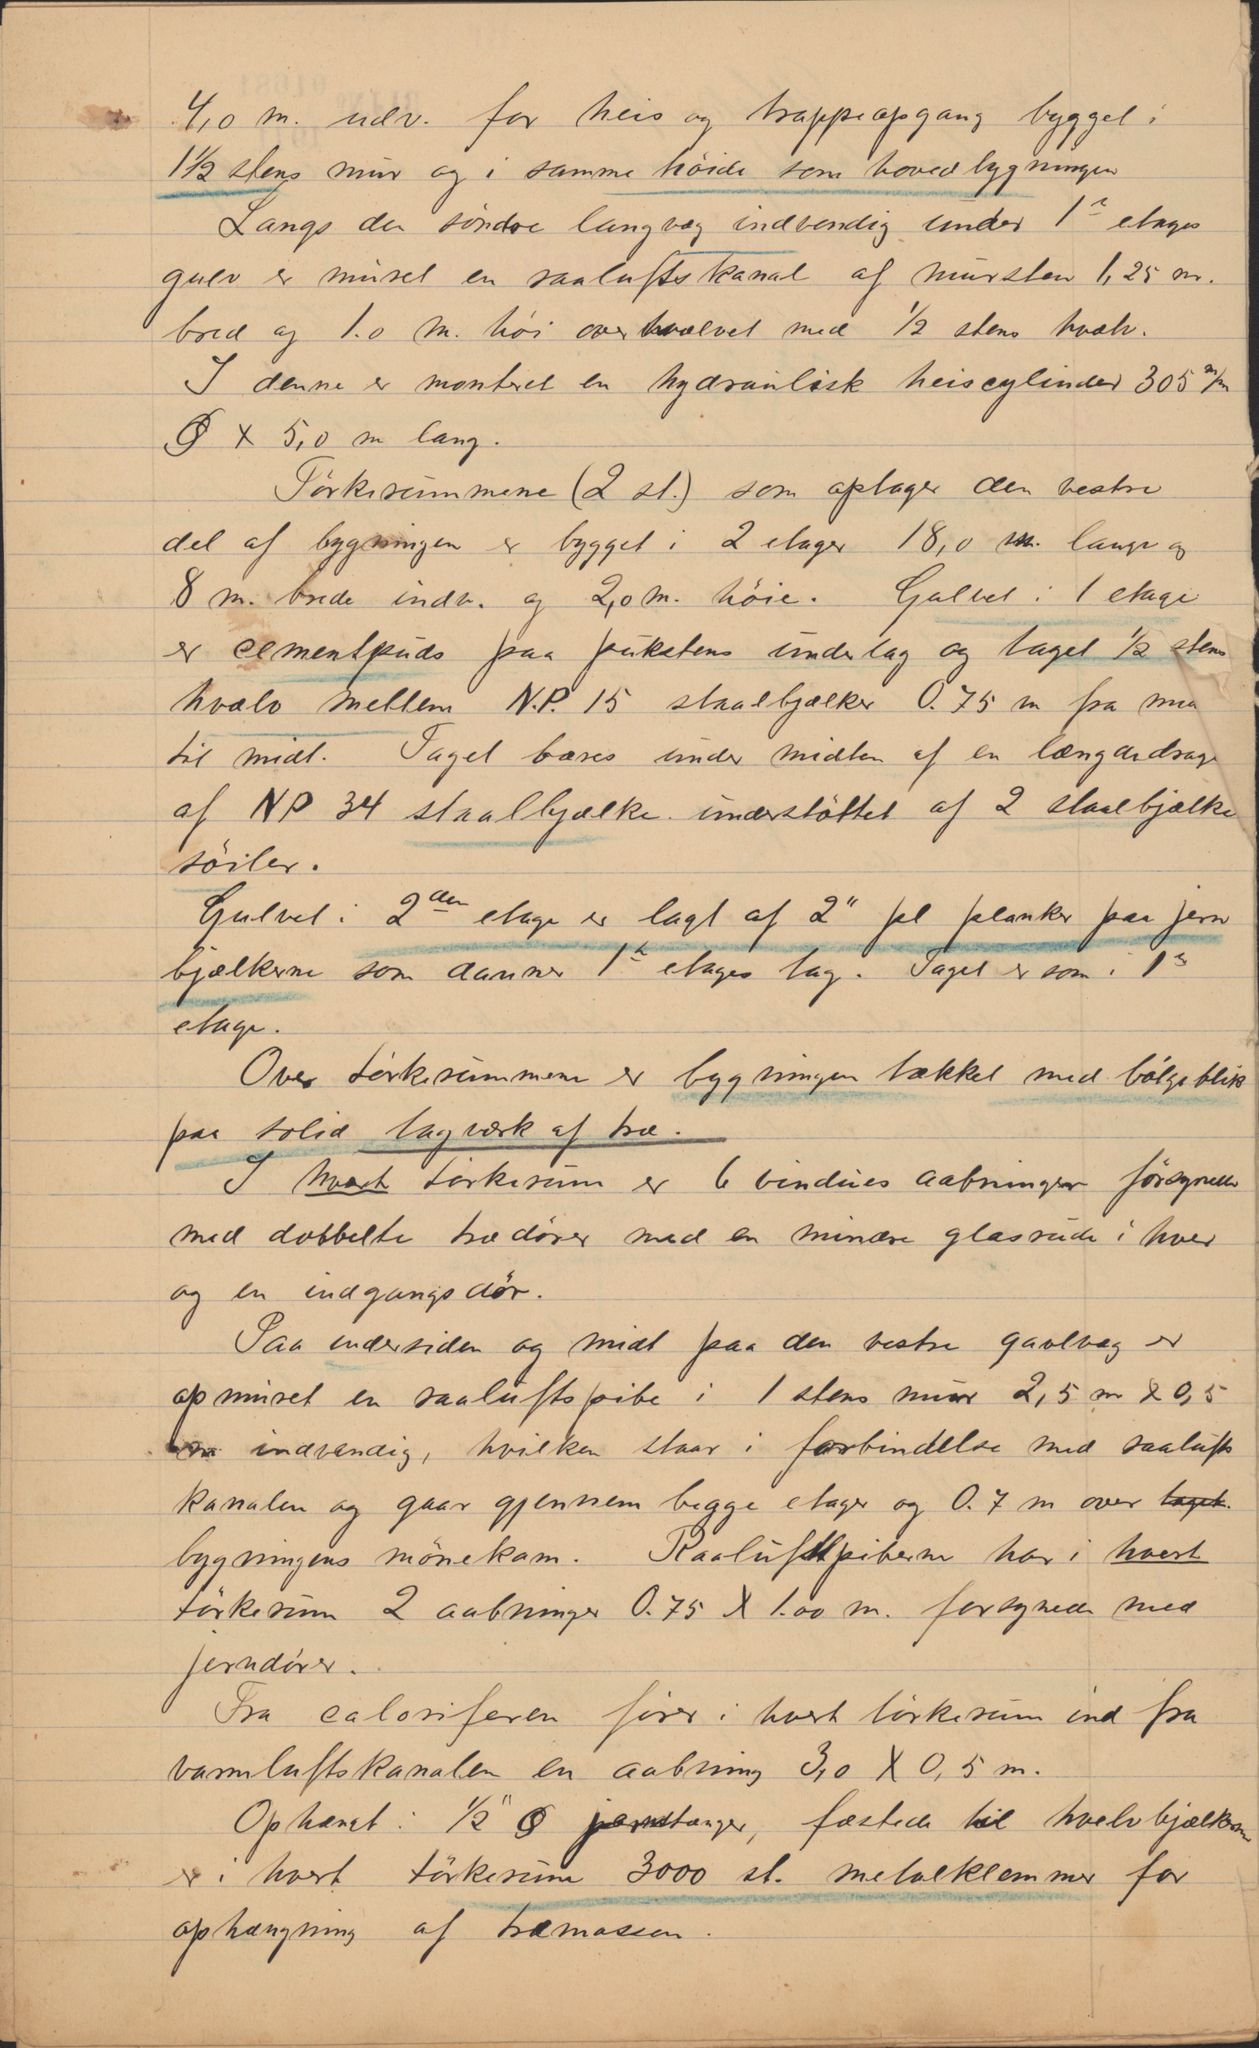 4,0 m. udv. for heis og trappeopgang bygget i
1½ stens mur og i samme höide som hovedbygningen
Langs den söndre langvæg indvendig under 1ste etages
gulv er muret en raaluftskanal af mursten 1,25 m.
bred og 1.0 m. höi overhvælvet med ½ stens hvælv.
I denne er monteret en hydraulisk heiscylinder 305 m/m
Ø X 5,0 m lang.
Törkerummene (2 st.) som optager den vestre
del af bygningen er bygget i 2 etager 18,0 m. lange og
8 m. brede indv. og 2,0 m. höie. Gulvet i 1 etage
er cementpuds paa pukstens underlag og taget ½ stens
hvælv mellem N.P. 15 staalbjælker 0.75 m fra
til midt. Taget bæres under midten af en længdedrage
af NP 34 staalbjælke understöttet af 2 staalbjælke
söiler.
Gulvet i 2den etage er lagt af 2" pl planker paa jern
bjælkerne som danner 1ste etages tag. Taget er som i 1ste
etage.
Over törkerummene er bygningen tækket med bölgeblik
paa solid tagværk af træ.
I hvert törkerum er 6 vindues aabninger forsynede
med dobbelte trædörer med en mindre glasrude i hver
og en indgangsdör.
Paa indersiden og midt paa den vestre gavlvæg er
opmuret en raaluftspibe i 1 stens mur 2,5 m X 0,5
m indvendig, hvilken staar i forbindelse med raalufts
kanalen og gaar gjennem begge etager og 0.7 m over taget.
bygningens mönekam. Raaluftpiberne har i hvert
törkerum 2 aabninger 0.75 X 1.00 m. forsynede med
jerndörer.
Fra caloriferen förer i hvert törkerum ind fra
varmluftskanalen en aabning 3,0 X 0,5 m.
Ophængt i ½" Ø jernstænger, fæstede til hvælvbjælkerne
er i hvert törkerum 3000 st. metalklemmer for
ophængning af træmassen.